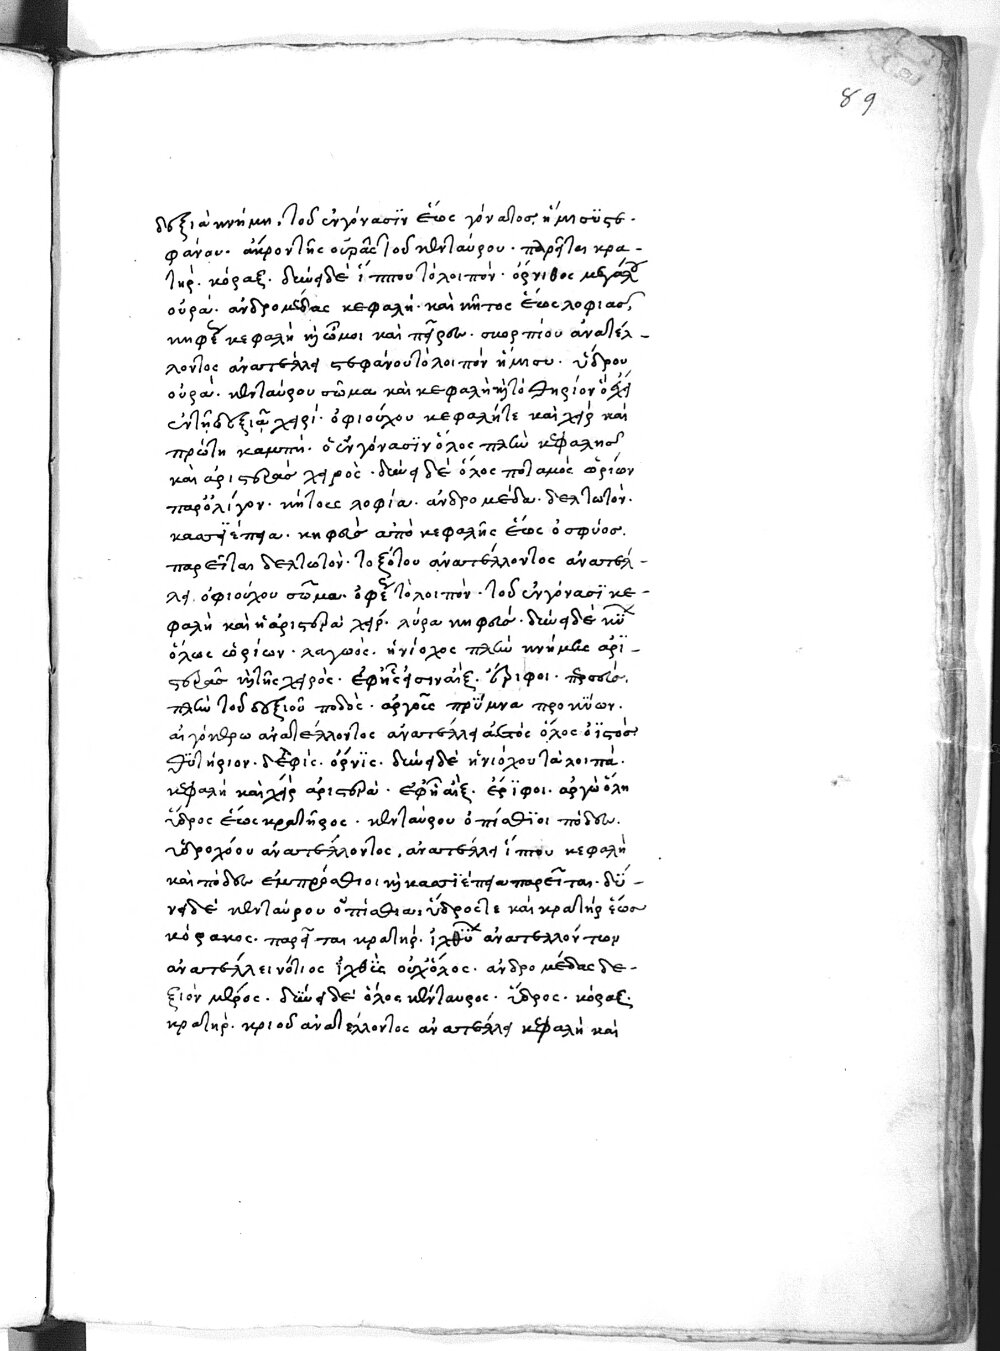 89
δεξιὰ κνήμη. τοῦ ἐνγόνασϊν ἕως γόνατος. ἥμησϋ στε-
φάνου. ἄκρον τῆς οὐρᾶς τοῦ κενταύρου. παρεῖται κρα-
τήρ. κόραξ. δύνει δὲ ἵππου τὸ λοιπόν. ὄρνιθος μεγάλου
οὐρά. ἀνδρομέδας κεφαλή. καὶ κῆτος ἕως λοφιᾶς.
κηφέως κεφαλὴ καὶ ὦμοι καὶ χεῖρες. σκορπίου ἀνατέλ-
λοντος ἀνατέλλει στεφάνου τὸ λοιπὸν ἥμισυ. ὕδρου
οὐρά. κενταύρου σῶμα καὶ κεφαλὴ καὶ τὸ θηρίον ὃ ἔχει
ἐν τῇ δεξιᾷ χειρί. ὀφιούχου κεφαλή τε καὶ χεὶρ καὶ
πρώτη καμπή. ὁ ἐνγόνασϊν ὅλος πλὴν κεφαλῆς
καὶ ἀριστερᾶς χειρός. δύνει δὲ ὅλος ποταμός ὠρίων
παρ' ὀλίγον. κήτους λοφία. ἀνδρομέδα. δελτωτόν.
κασσϊέπεια. κηφεὺς ἀπὸ κεφαλῆς ἕως ὀσφύος.
παρεῖται δελτωτόν. τοξότου ἀνατέλλοντος ἀνατέλ-
λει ὀφιούχου σῶμα. ὄφεως τὸ λοιπόν. τοῦ ἐνγόνασϊ κε-
φαλὴ καὶ ἡ ἀριστερὰ χείρ. λύρα κηφεύς. δύνει δὲ κύων
ὅλως ὠρίων. λαγωός. ἡνίοχος πλὴν κνήμης ἀρϊ-
στερᾶς καὶ τῆς χειρός. ἐφ' ἧς εἰσιν αἲξ. ἔριφοι. περσεύς.
πλὴν τοῦ δεξιοῦ ποδός. ἀργοῦς πρϋμνα προκϋων.
αἰγόκερω ἀνατέλλοντος ἀνατέλλει ἀετός ὅλος ὀϊστός
θϋτήριον. δελφίς. ὄρνϊς. δύνει δὲ ἡνιόχου τὰ λοιπά.
κεφαλὴ καὶ χεὶρ ἀριστερά. ἐφ' ἧ αἲξ. ἔρϊφοι. ἀργὼ ὅλη
ὕδρος ἕως κρατῆρος. κενταύρου ὀπίσθϊοι πόδες.
ὑδροχόου ἀνατέλλοντος. ἀνατέλλει ἵππου κεφαλὴ
καὶ πόδες ἐμπρόσθιοι καὶ κασσϊέπεια παρεῖται. δϋ-
νει δὲ κενταύρου ὀπίσθια. ὕδρος τε καὶ κρατὴρ ἕως
κόρακος. παρεῖται κρατήρ. ἰχθύων ἀνατελλόντων
ἀνατέλλει νότιος ἰχθὺς οὐχ ὅλος. ἀνδρομέδας δε-
ξιὸν μέρος. δύνει δὲ ὅλος κένταυρος. ὕδρος. κόραξ.
κρατήρ. κριοῦ ἀνατέλλοντος ἀνατέλλει κεφαλὴ καὶ